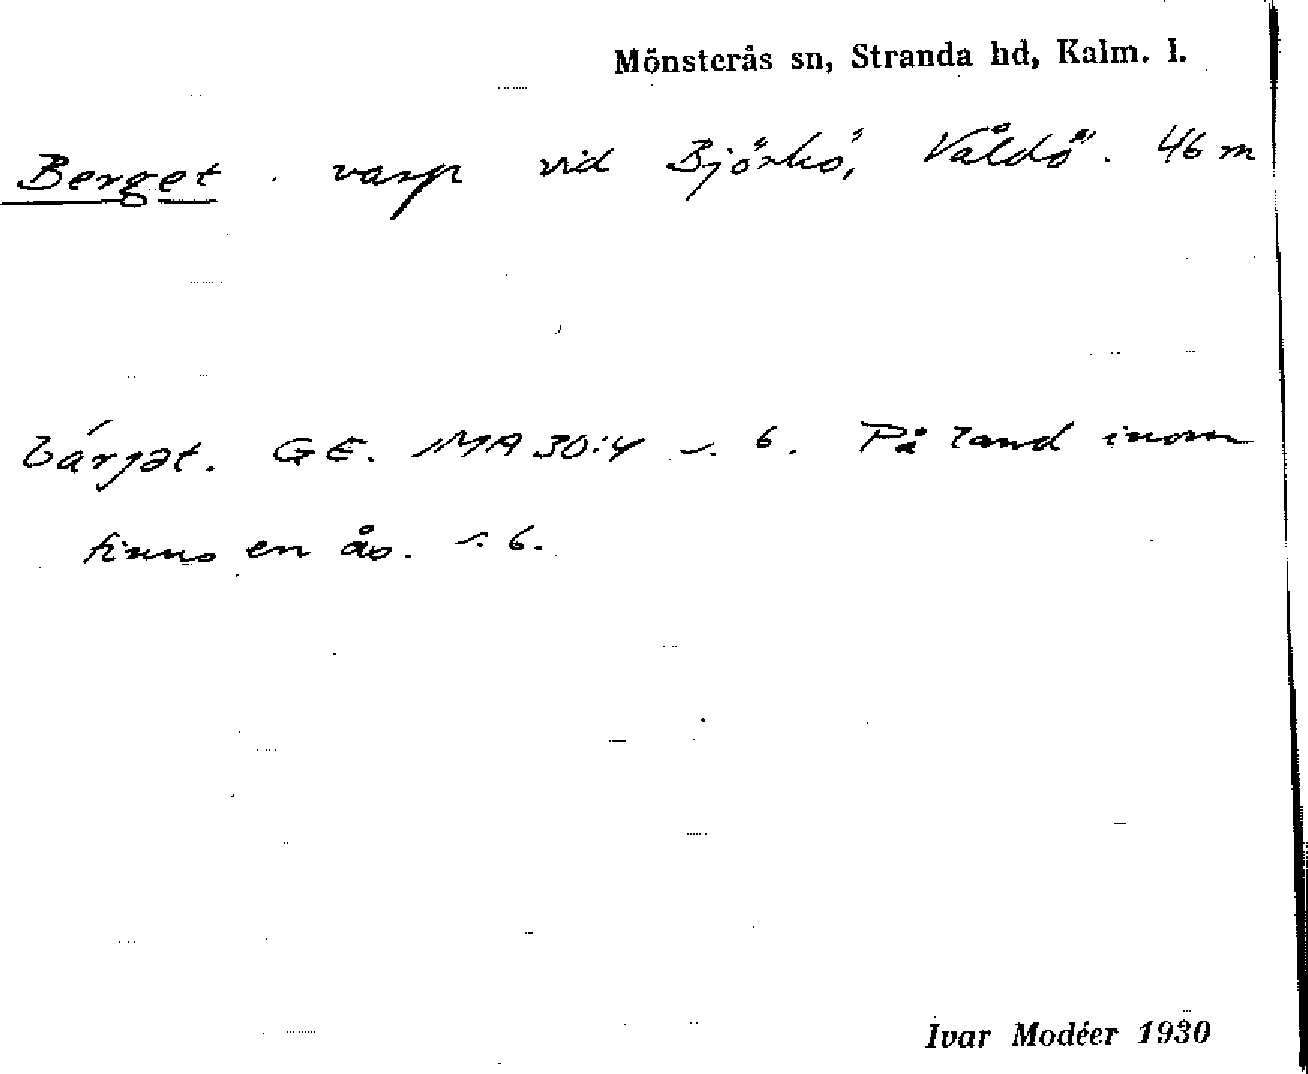 Mönsterås sn, Stranda hd, Kalm. l.
Berget . varp vid Björkö, Våldö. 46 m
bárjət. G E. MA 30:4 s. 6. På land inom
finns en ås. s. 6.
Ivar Modéer 1930